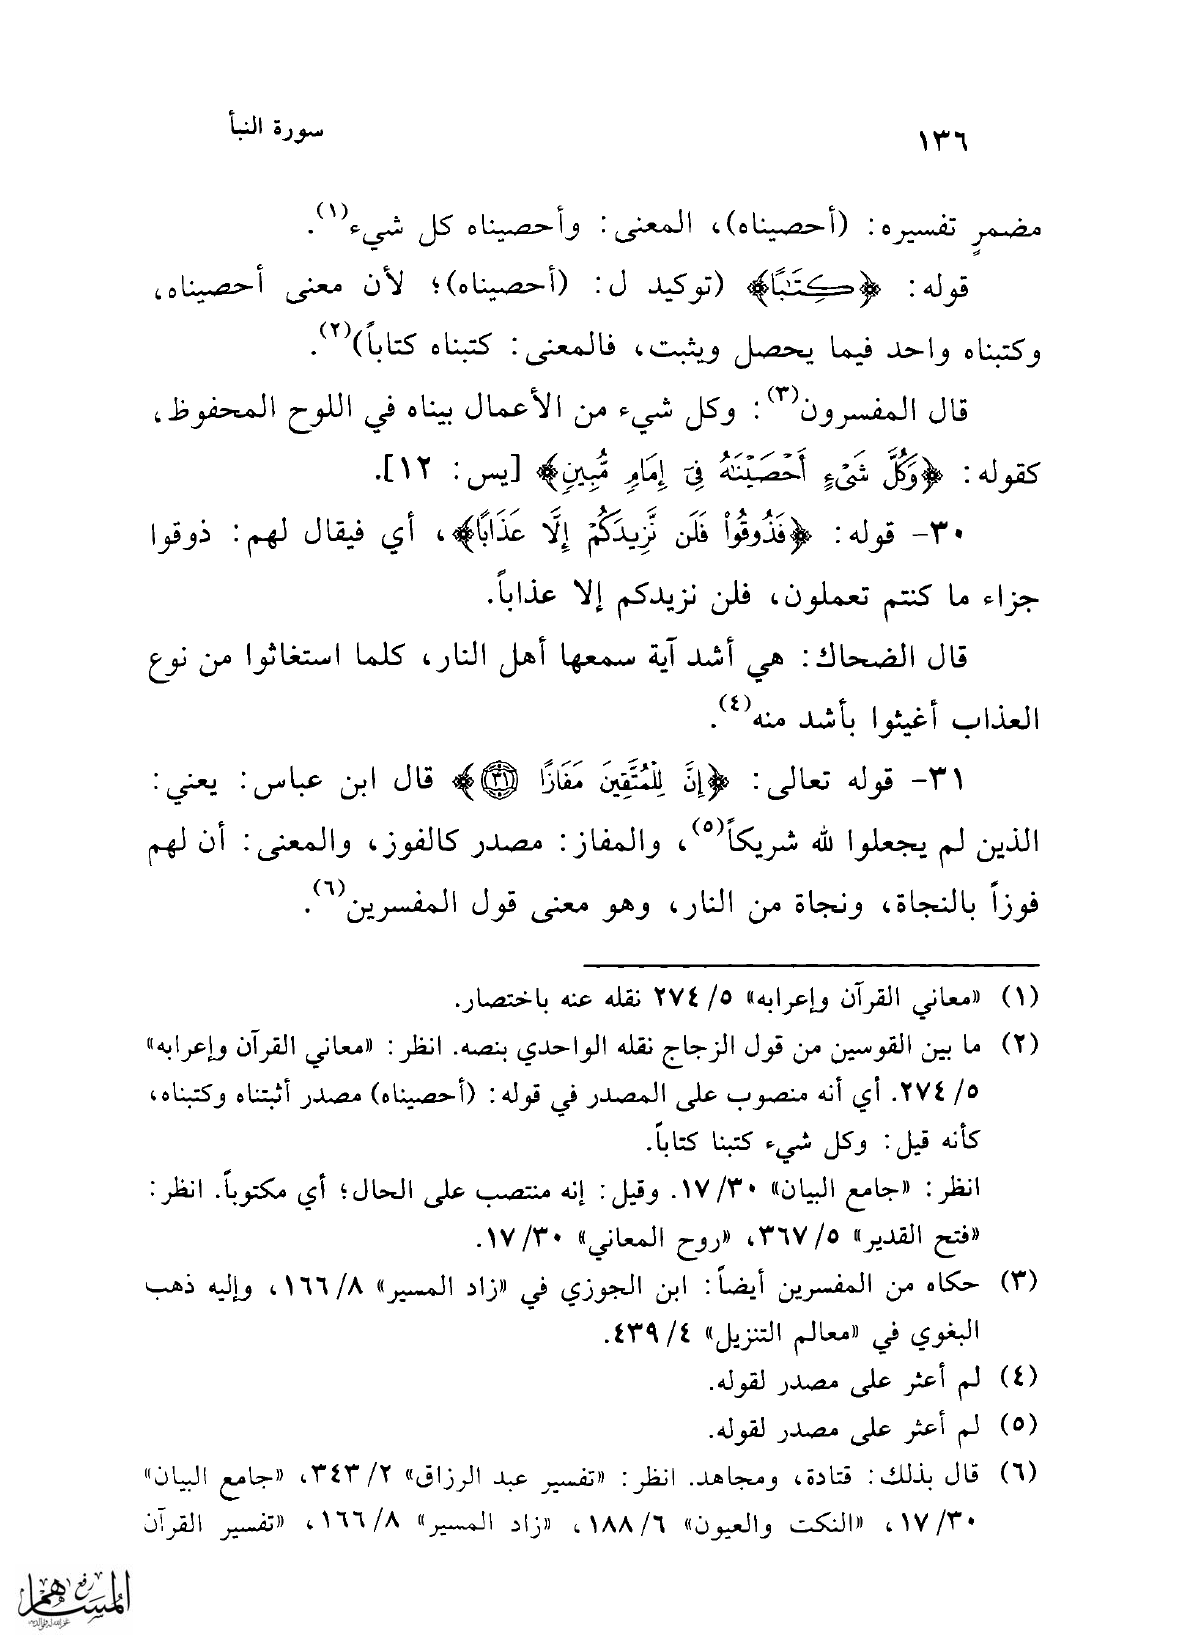 ١٣٦ سورة النبأ
مضمرٍ تفسيره: (أحصيناه)، المعنى: وأحصيناه كل شيء(١).
قوله: ﴿كِتَٰبًا﴾ (توكيد ل: (أحصيناه)؛ لأن معنى أحصيناه،
وكتبناه واحد فيما يحصل ويثبت، فالمعنى: كتبناه كتاباً)(٢).
قال المفسرون(٣): وكل شيء من الأعمال بيناه في اللوح المحفوظ،
كقوله: ﴿وَكُلَّ شَىْءٍ أَحْصَيْنَٰهُ فِىٓ إِمَامٍ مُّبِينٍ﴾ [يس: ١٢].
٣٠- قوله: ﴿فَذُوقُوا۟ فَلَن نَّزِيدَكُمْ إِلَّا عَذَابًا﴾، أي فيقال لهم: ذوقوا
جزاء ما كنتم تعملون، فلن نزيدكم إلا عذاباً.
قال الضحاك: هي أشد آية سمعها أهل النار، كلما استغاثوا من نوع
العذاب أغيثوا بأشد منه(٤).
٣١- قوله تعالى: ﴿إِنَّ لِلْمُتَّقِينَ مَفَازًا ٣١﴾ قال ابن عباس: يعني:
الذين لم يجعلوا لله شريكاً(٥)، والمفاز: مصدر كالفوز، والمعنى: أن لهم
فوزاً بالنجاة، ونجاة من النار، وهو معنى قول المفسرين(٦).
(١) «معاني القرآن وإعرابه» ٥/ ٢٧٤ نقله عنه باختصار.
(٢) ما بين القوسين من قول الزجاج نقله الواحدي بنصه. انظر: «معاني القرآن وإعرابه»
٥/ ٢٧٤. أي أنه منصوب على المصدر في قوله: (أحصيناه) مصدر أثبتناه وكتبناه،
كأنه قيل: وكل شيء كتبنا كتاباً.
انظر: «جامع البيان» ٣٠/ ١٧. وقيل: إنه منتصب على الحال؛ أي مكتوباً. انظر:
«فتح القدير» ٥/ ٣٦٧، «روح المعاني» ٣٠/ ١٧.
(٣) حكاه من المفسرين أيضاً: ابن الجوزي في «زاد المسير» ٨/ ١٦٦، وإليه ذهب
البغوي في «معالم التنزيل» ٤/ ٤٣٩.
(٤) لم أعثر على مصدر لقوله.
(٥) لم أعثر على مصدر لقوله.
(٦) قال بذلك: قتادة، ومجاهد. انظر: «تفسير عبد الرزاق» ٢/ ٣٤٣، «جامع البيان»
٣٠/ ١٧، «النكت والعيون» ٦/ ١٨٨، «زاد المسير» ٨/ ١٦٦، «تفسير القرآن